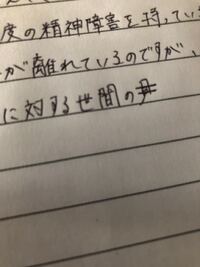 度の精神障害を持ってい
が離れているのですが、
に対する世間の